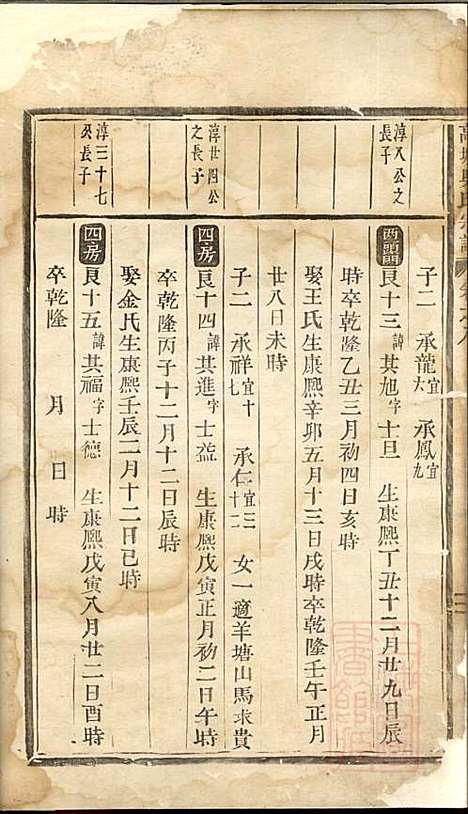 子二 承龍宜大 承鳳宜九
淳八公之長子
西頭門 艮十三諱其旭字士旦 生康熙丁丑十二月廿九日辰
時卒乾隆乙丑三月初四日亥時
娶王氏生康熙辛卯五月十三日戌時卒乾隆壬午正月
廿八日未時
子二 承祥宜十七 承仁宜三十二 女一適羊塘山馬求貴
淳廿四公之長子
四房 艮十四諱其進字士益 生康熙戊寅正月初二日午時
卒乾隆丙子十二月十二日辰時
娶金氏生康熙壬辰二月十二日巳時
淳三十七公長子
四房 艮十五諱其福字士德 生康熙戊寅八月廿二日酉時
卒乾隆 月 日 時